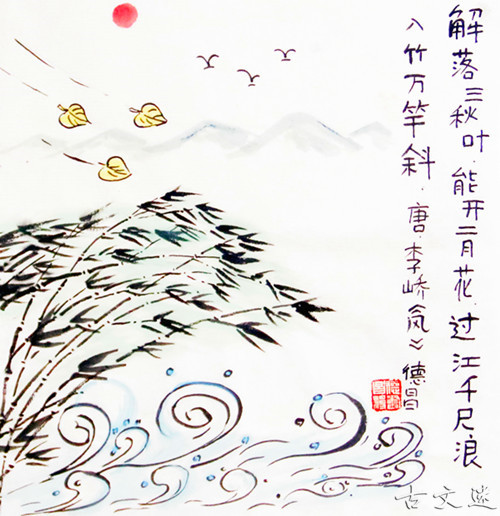 解落三秋叶.能开二月花.过江千尺浪
入竹万竿斜.唐.李峤风》德昌
古文